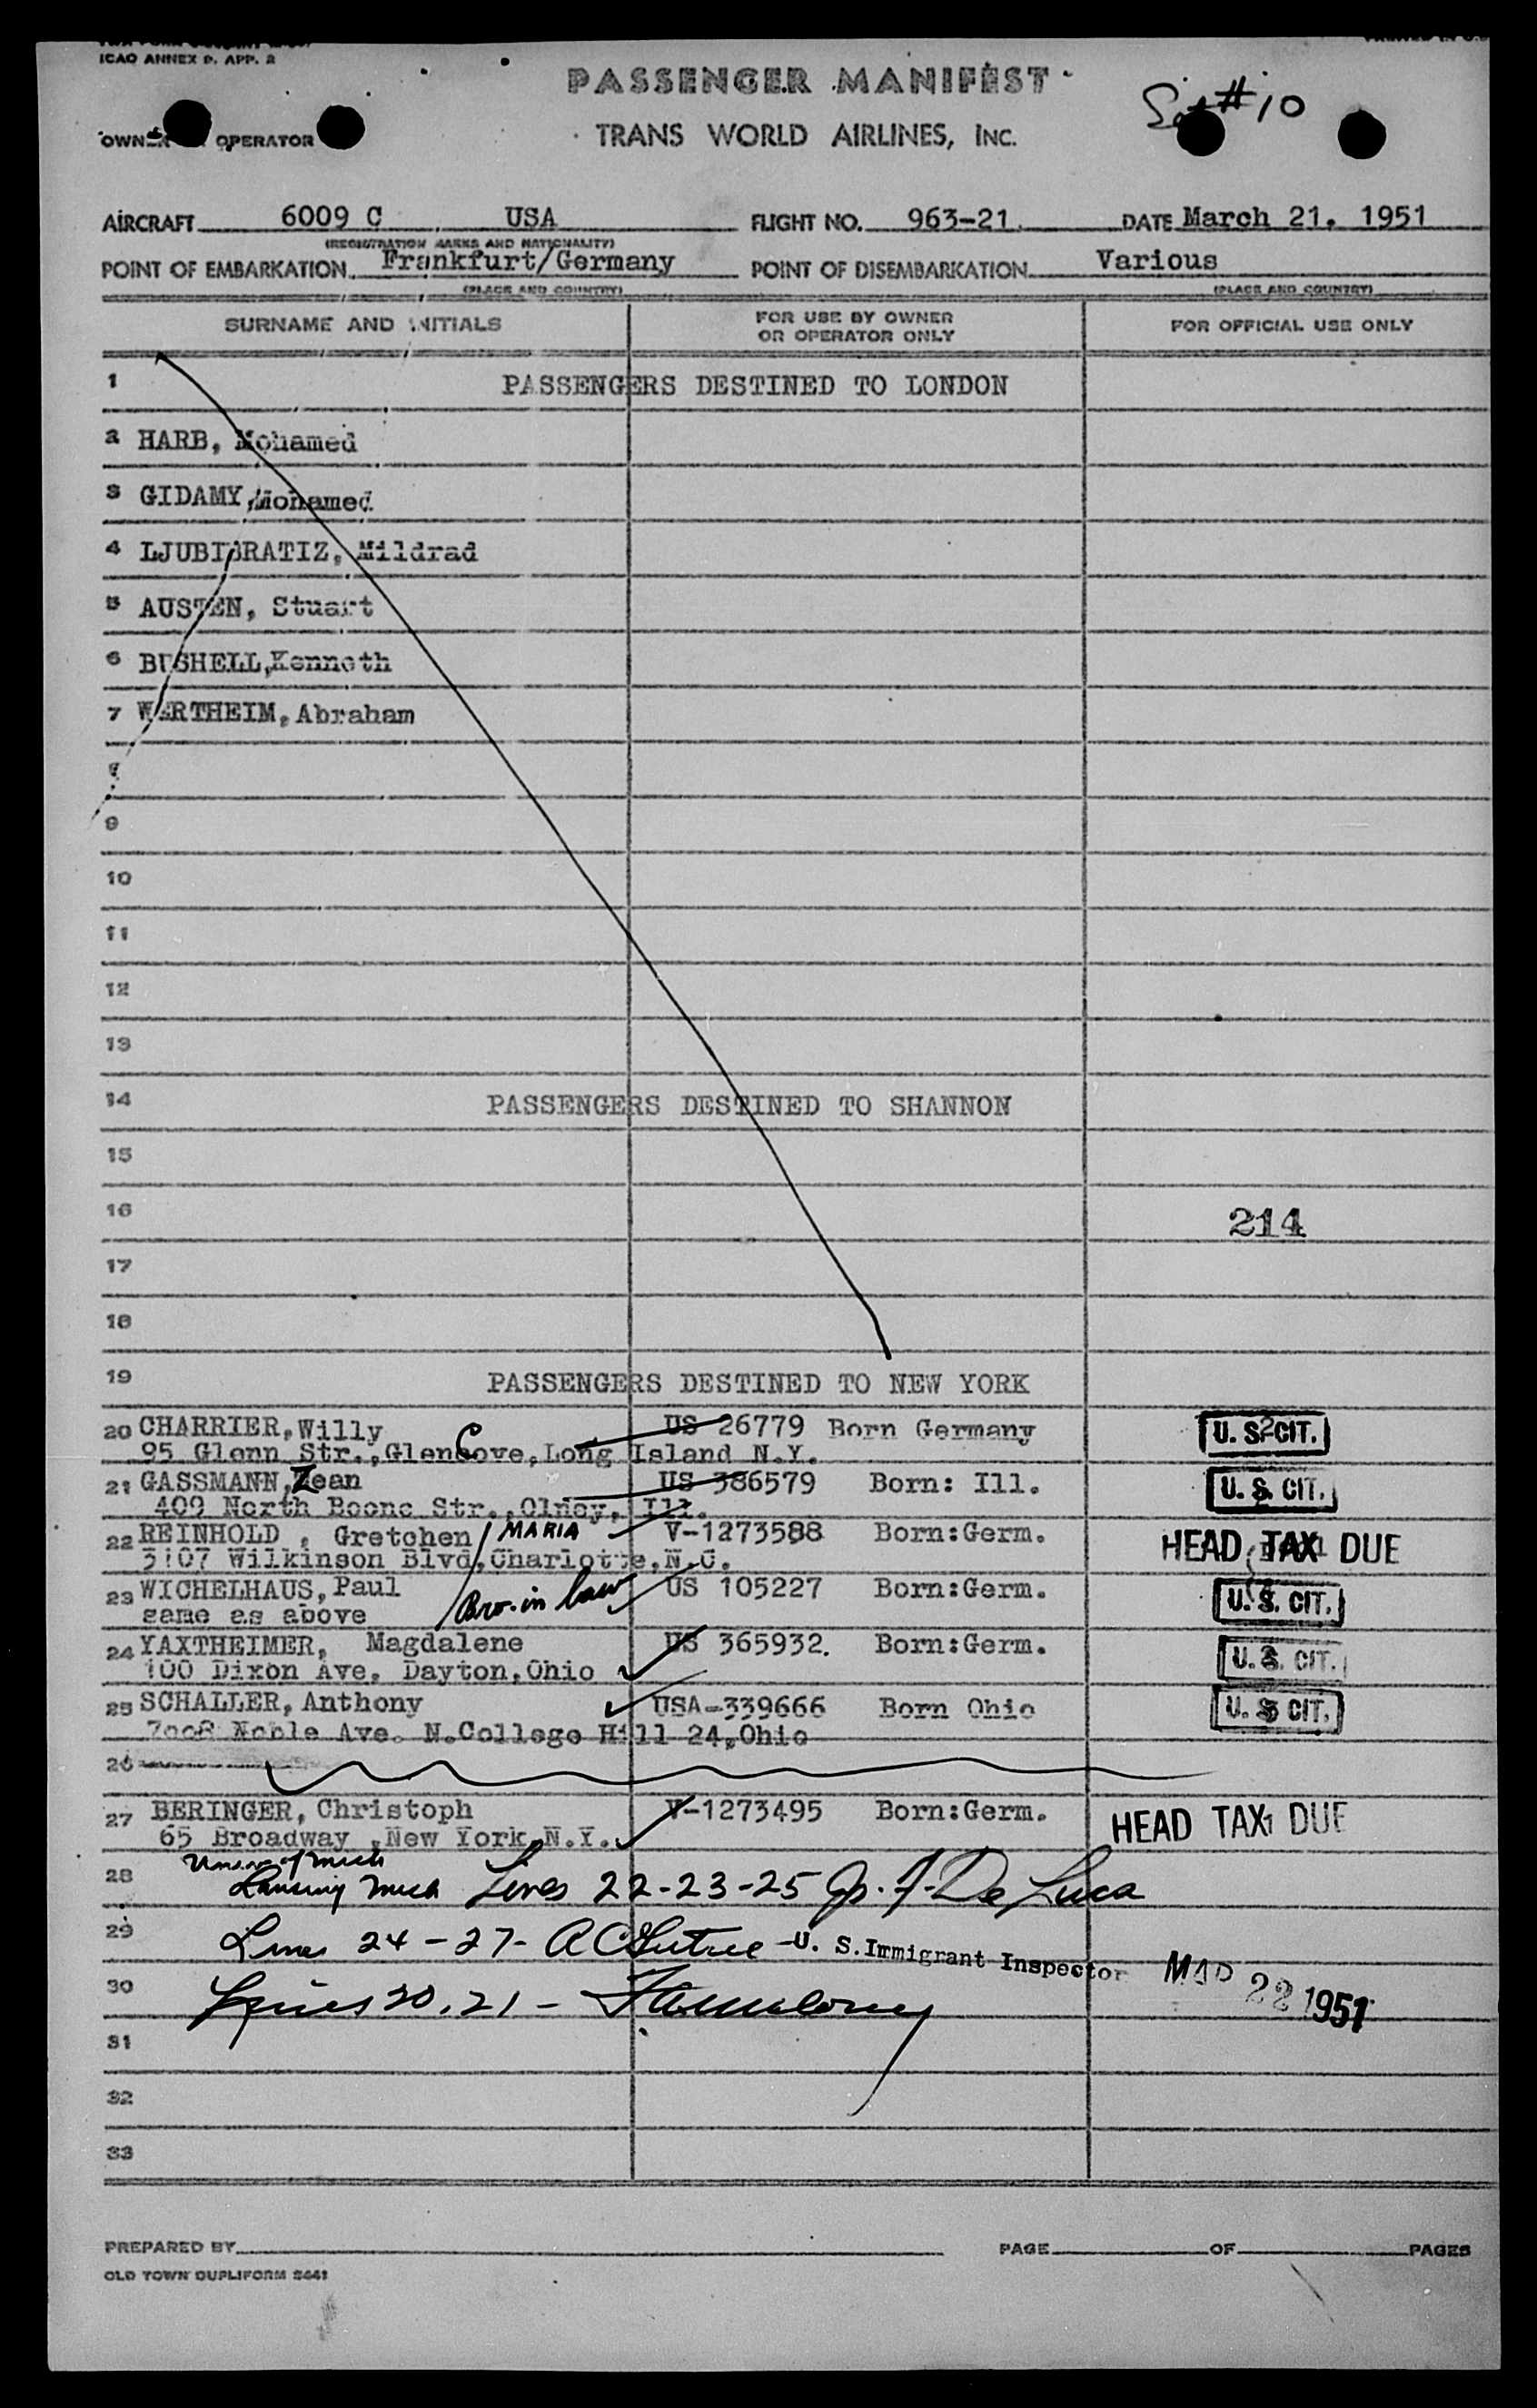 ICAO ANNEX 9. APP. 2
PASSENGER MANIFEST
#10
OPERATOR
TRANS WORLD AIRLINES, INC.
AIRCRAFT 6009 C USA FLIGHT NO. 963-21 DATE March 21. 1951
(REGISTRATION MARKS AND NATIONALITY)
POINT OF EMBARKATION Frankfurt/Germany POINT OF DISEMBARKATION Various
(PLACE AND COUNTRY) (PLACE AND COUNTRY)
SURNAME AND INITIALS FOR USE BY OWNER OR OPERATOR ONLY FOR OFFICIAL USE ONLY
1 PASSENGERS DESTINED TO LONDON
2 HARB, Mohamed
3 GIDAMY, Mohamed
4 LJUBIBRATIZ, Mildrad
5 AUSTEN, Stuart
6 BUSHELL, Kenneth
7 WERTHEIM, Abraham
9
10
11
12
13
14 PASSENGERS DESTINED TO SHANNON
15
16 214
17
18
19 PASSENGERS DESTINED TO NEW YORK
20 CHARRIER, Willy US 26779 Born Germany U. S. CIT.
95 Glenn Str., Glen Cove, Long Island N.Y.
21 GASSMANN, Zean US 386579 Born: Ill. U. S. CIT.
409 North Boone Str., Olney, Ill.
22 REINHOLD, Gretchen MARIA V-1273588 Born:Germ. HEAD TAX DUE
3107 Wilkinson Blvd, Charlotte, N.C.
23 WICHELHAUS, Paul Bro. in law US 105227 Born:Germ. U. S. CIT.
same as above
24 YAXTHEIMER, Magdalene US 365932. Born:Germ. U. S. CIT.
100 Dixon Ave, Dayton, Ohio
25 SCHALLER, Anthony USA-339666 Born Ohio U. S. CIT.
Noble Ave. N.College Hill 24, Ohio
26
27 BERINGER, Christoph V-1273495 Born:Germ. HEAD TAX DUE
65 Broadway, New York, N.Y.
Univ. of Mich
28 Lansing Mich Lines 22-23-25 De Luca
29 Lines 24-27- U. S. Immigrant Inspector MAR 22 1951
30 Lines 20, 21 -
31
32
33
PREPARED BY PAGE OF PAGES
OLD TOWN DUPLIFORM 5441